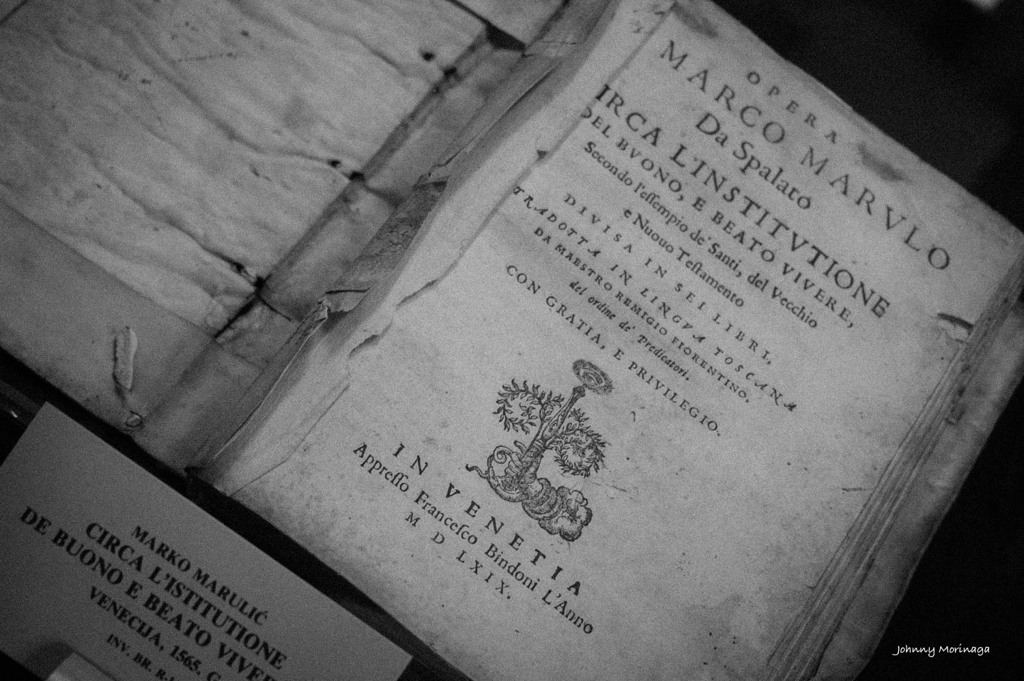 OPERA
MARCO MARVLO
Da Spalato
IRCA L'INSTITVTIONE
DEL BVONO, E BEATO VIVERE,
Secondo l'essempio de' Santi, del Vecchio
e Nuouo Testamento
DIVISA IN SEI LIBRI,
TRADOTTA IN LINGVA TOSCANA
DA MAESTRO REMIGIO FIORENTINO,
del ordine de' Predicatori.
CON GRATIA, E PRIVILEGIO.
IN VENETIA
Appresso Francesco Bindoni L'Anno
M D LXIX.
MARKO MARULIĆ
CIRCA L'ISTITUTIONE
DE BUONO E BEATO VIVE
VENECIJA, 1565. G
INV. BR. R.
Johnny Morinaga